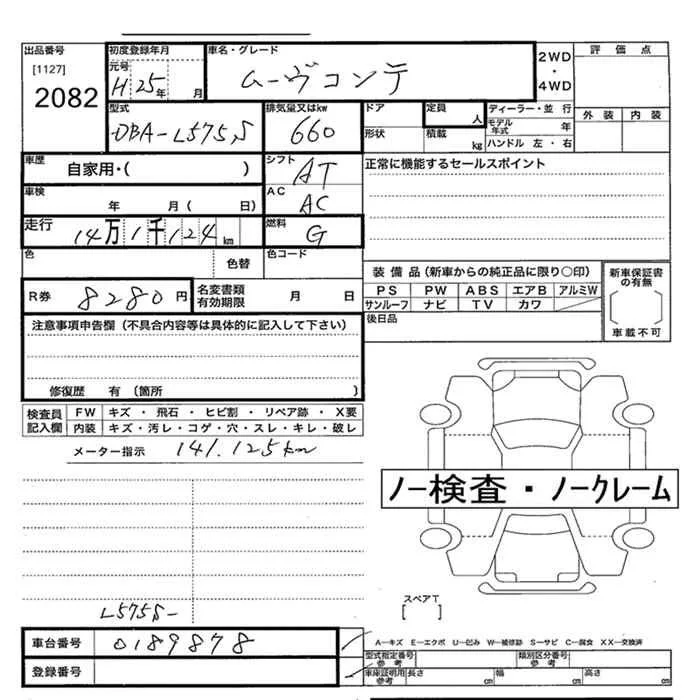 出品番号
[1127]
2082
初度登録年月
元号
H 25年 月
車名・グレード
ムーヴコンテ
2WD
・
4WD
評価点
外装 内装
型式
DBA-L575S
排気量又はkw
660
ドア
形状
定員 人
積載 kg
ディーラー・並行
モデル年式 年
ハンドル 左・右
車歴
自家用・( )
シフト
AT
正常に機能するセールスポイント
車検
年 月( 日)
AC
AC
走行
14万1千124km
燃料
G
色
色替
色コード
装備品(新車からの純正品に限り○印)
PS PW ABS エアB アルミW
サンルーフ ナビ TV カワ
新車保証書の有無
車載不可
R券
8280円
名変書類有効期限
月 日
後日品
注意事項申告欄(不具合内容等は具体的に記入して下さい)
修復歴 有(箇所 )
検査員記入欄
FW キズ・飛石・ヒビ割・リペア跡・X要
内装 キズ・汚レ・コゲ・穴・スレ・キレ・破レ
メーター指示 141.125km
ノー検査・ノークレーム
スペアT
[ ]
L575S-
車台番号
0189878
登録番号
A―キズ E―エクボ U―凹み W―補修跡 S―サビ C―腐食 XX―交換済
型式指定番号 参考
類別区分番号 参考
車庫証明用 参考
長さ cm
幅 cm
高さ cm